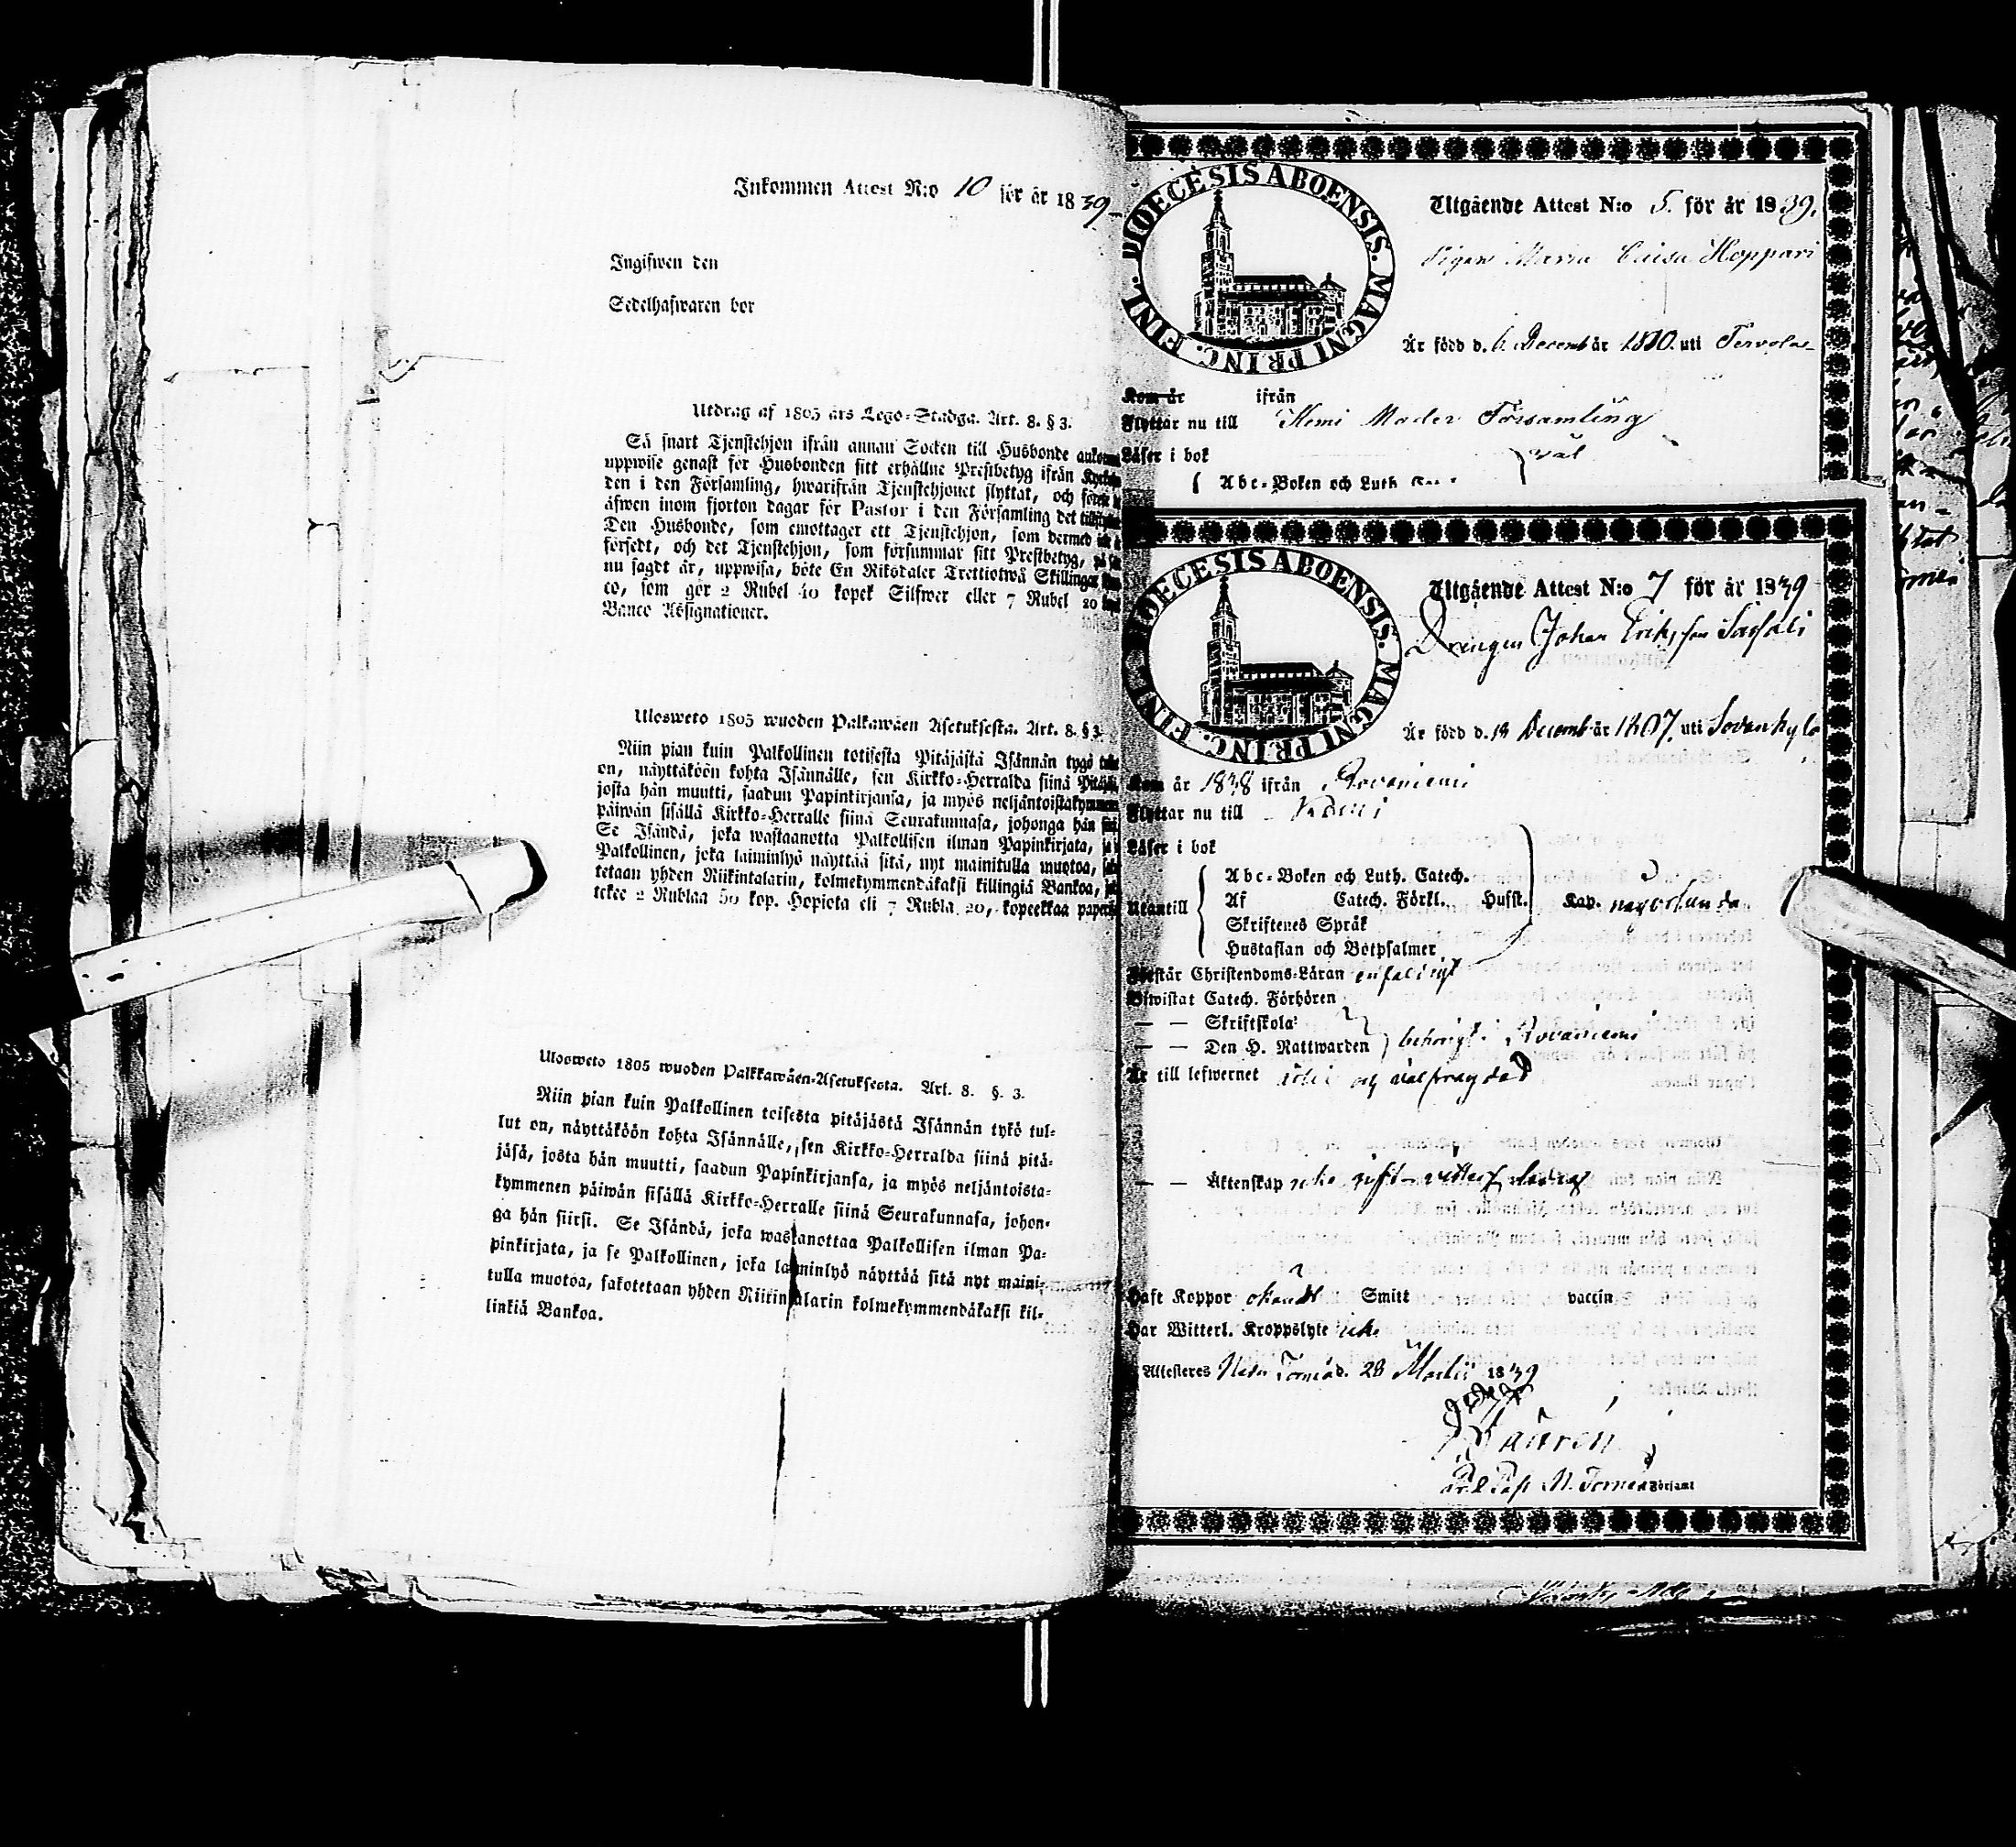 Inkommen Attest N:o 10 för år 1839
Ingifwen den
Sedelhafwaren bor
Utdrag af 1805 års Lego-Stadga. Art. 8. § 3.
Så snart Tjenstehjon ifrån annan Socken till Husbonde
uppwise genast för Husbonden sitt erhållne Prestbetyg ifrån
den i den Församling, hwarifrån Tjenstehjonet flyttat, och
äfwen inom fjorton dagar för Pastor i den Församling det
Den Husbonde, som emottager ett Tjenstehjon, som dermed
försedt, och det Tjenstehjon, som försummar sitt Prestbetyg, på
nu sagdt är, uppwisa, böte En Riksdaler Trettiotwå Skillingar
co, som gör 2 Rubel 40 kopek Silfwer eller 7 Rubel 20
Banco Assignationer.
Ulosweto 1805 wuoden Palkawäen Asetuksesta. Art. 8. § 3.
Niin pian kuin Palkollinen totisesta Pitäjästä Isännän tygö
on, näyttäköön kohta Isännälle, sen Kirkko-Herralda siinä
josta hän muutti, saadun Papinkirjansa, ja myös
päiwän sisällä Kirkko-Herralle siinä Seurakunnasa, johonga hän
Se Isändä, joka wastaanotta Palkollisen ilman Papinkirjata,
Palkollinen, joka laiminlyö näyttää sitä, nyt mainitulla muotoa,
tetaan yhden Riikintalarin, kolmekymmendäkaksi killingiä Bankoa,
tekee 2 Rublaa 50 kop. Hopiota eli 7 Rubla 20, kopeekkaa
Ulosweto 1805 wuoden Palkkawäen-Asetuksesta. Art. 8. §. 3.
Niin pian kuin Palkollinen toisesta pitäjästä Isännän tykö tul-
lut on, näyttäköön kohta Isännälle, sen Kirkko-Herralda siinä pitä-
jäsä, josta hän muutti, saadun Papinkirjansa, ja myös neljäntoista-
kymmenen päiwän sisällä Kirkko-Herralle siinä Seurakunnasa, johon-
ga hän siirsi. Se Isändä, joka wastanottaa Palkollisen ilman Pa-
pinkirjata, ja se Palkollinen, joka laiminlyö näyttää sitä nyt maini-
tulla muotoa, sakotetaan yhden Riikintalarin kolmekymmendäkaksi kil-
linkiä Bankoa.
DIOECESIS ABOENSIS. MAGNI PRINC. FINL.
Utgående Attest N:o 5. för år 1839.
Pigan Maria Caisa Hoppari
Är född d. 6 Decemb år 1810. uti Tervola
Kom år ifrån
Flyttar nu till Kemi Moder Församling
Läser i bok väl
Abc-Boken och Luth.
DIOECESIS ABOENSIS. MAGNI PRINC. FINL.
Utgående Attest N:o 7 för år 1839
Drengen Johan Eriksson
Är född d. 18 Decemb år 1807. uti Sodankylä
Kom år 1838 ifrån Rovaniemi
Flyttar nu till Kemi
Läser i bok
Abc-Boken och Luth. Catech.
Utantill Af Catech. Förkl. Hufst. Kap. någorlunda
Skriftenes Språk
Hustaflan och Botpsalmer
Förstår Christendoms-Läran enfaldigt
Biwistat Catech. Förhören
— — Skriftskola
— — Den H. Nattwarden behörigt i Rovaniemi
Är till lefwernet och välfrägdad
— — Äktenskap
Haft Koppor okändt Smitt vaccin
Har Witterl. Kroppslyte icke
Attesteres Neder Torneå d. 28 Martii 1839
N. Torneå Församl